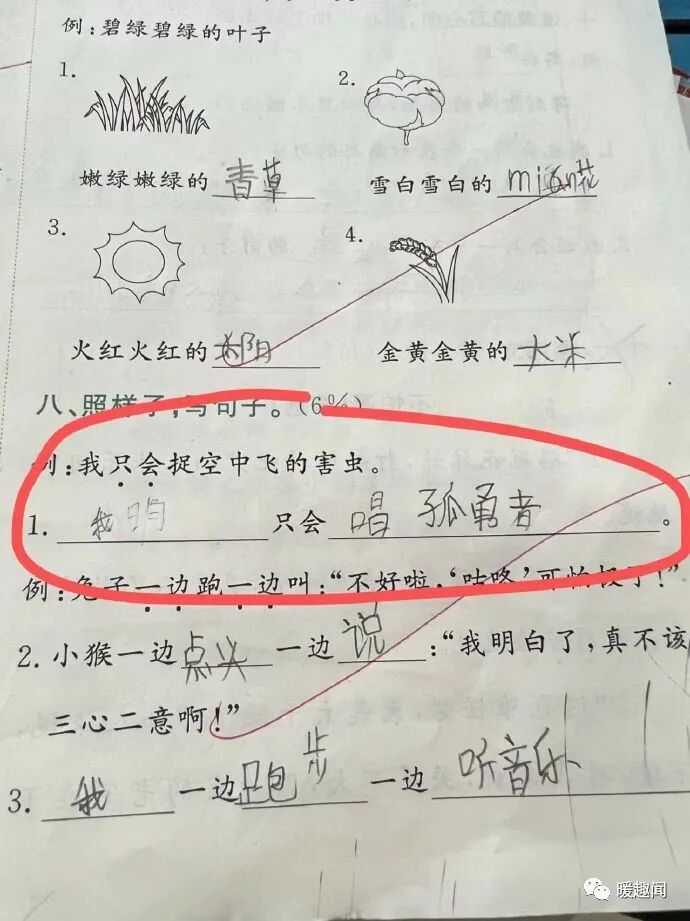 例:碧绿碧绿的叶子
1.
2.
嫩绿嫩绿的 青草
雪白雪白的 mián花
3.
4.
火红火红的 太阳
金黄金黄的 大米
八、照样子,写句子。(6%)
例:我只会捉空中飞的害虫。
1. 只会 唱 孤勇者 。
例:兔子一边跑一边叫:“不好啦,‘咕咚’可怕极了!”
2. 小猴一边点头一边说:“我明白了,真不该
三心二意啊!”
3. 我一边跑步一边听音乐
暖趣闻